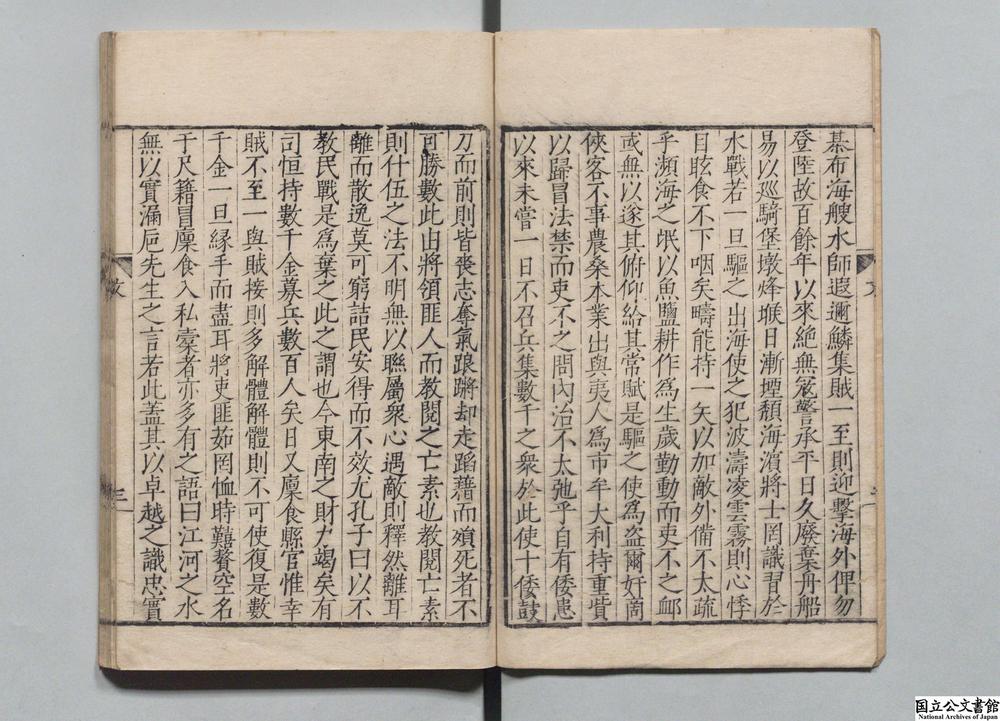 碁布海艘水師遐邇鱗集賊一至則迎擊海外俾勿
登陸故百餘年以來絕無寇警承平日久廢棄舟船
易以巡騎堡墩烽堠日漸堙頹海濱將士罔識習於
水戰若一旦驅之出海使之犯波濤凌雲霧則心悸
目眩食不下咽矣疇能持一矢以加敵外備不太疏
乎瀕海之氓以魚鹽耕作為生歲勤動而吏不之䘏
或無以遂其俯仰給其常賦是驅之使為盜爾奸商
俠客不事農桑本業出與夷人為市牟大利持重貲
以歸冒法禁而吏不之問內治不太弛乎自有倭患
以來未嘗一日不召兵集數千之眾於此使十倭鼓
刀而前則皆喪志奪氣踉蹡却走蹈藉而殞死者不
可勝數此由將領匪人而教閱之亡素也教閱亡素
則什伍之法不明無以聯屬衆心遇敵則釋然離耳
離而散逸莫可窮詰民安得而不效尤孔子曰以不
教民戰是為棄之此之謂也今東南之財力竭矣有
司恒持數千金募兵數百人矣日又廩食縣官惟幸
賊不至一與賊接則多解體解體則不可使復是數
千金一旦緣手而盡耳將吏匪茹罔恤時囏贅空名
于尺籍冒廩食入私橐者亦多有之語曰江河之水
無以實漏巵先生之言若此蓋其以卓越之識忠實
文
三
国立公文書館
National Archives of Japan